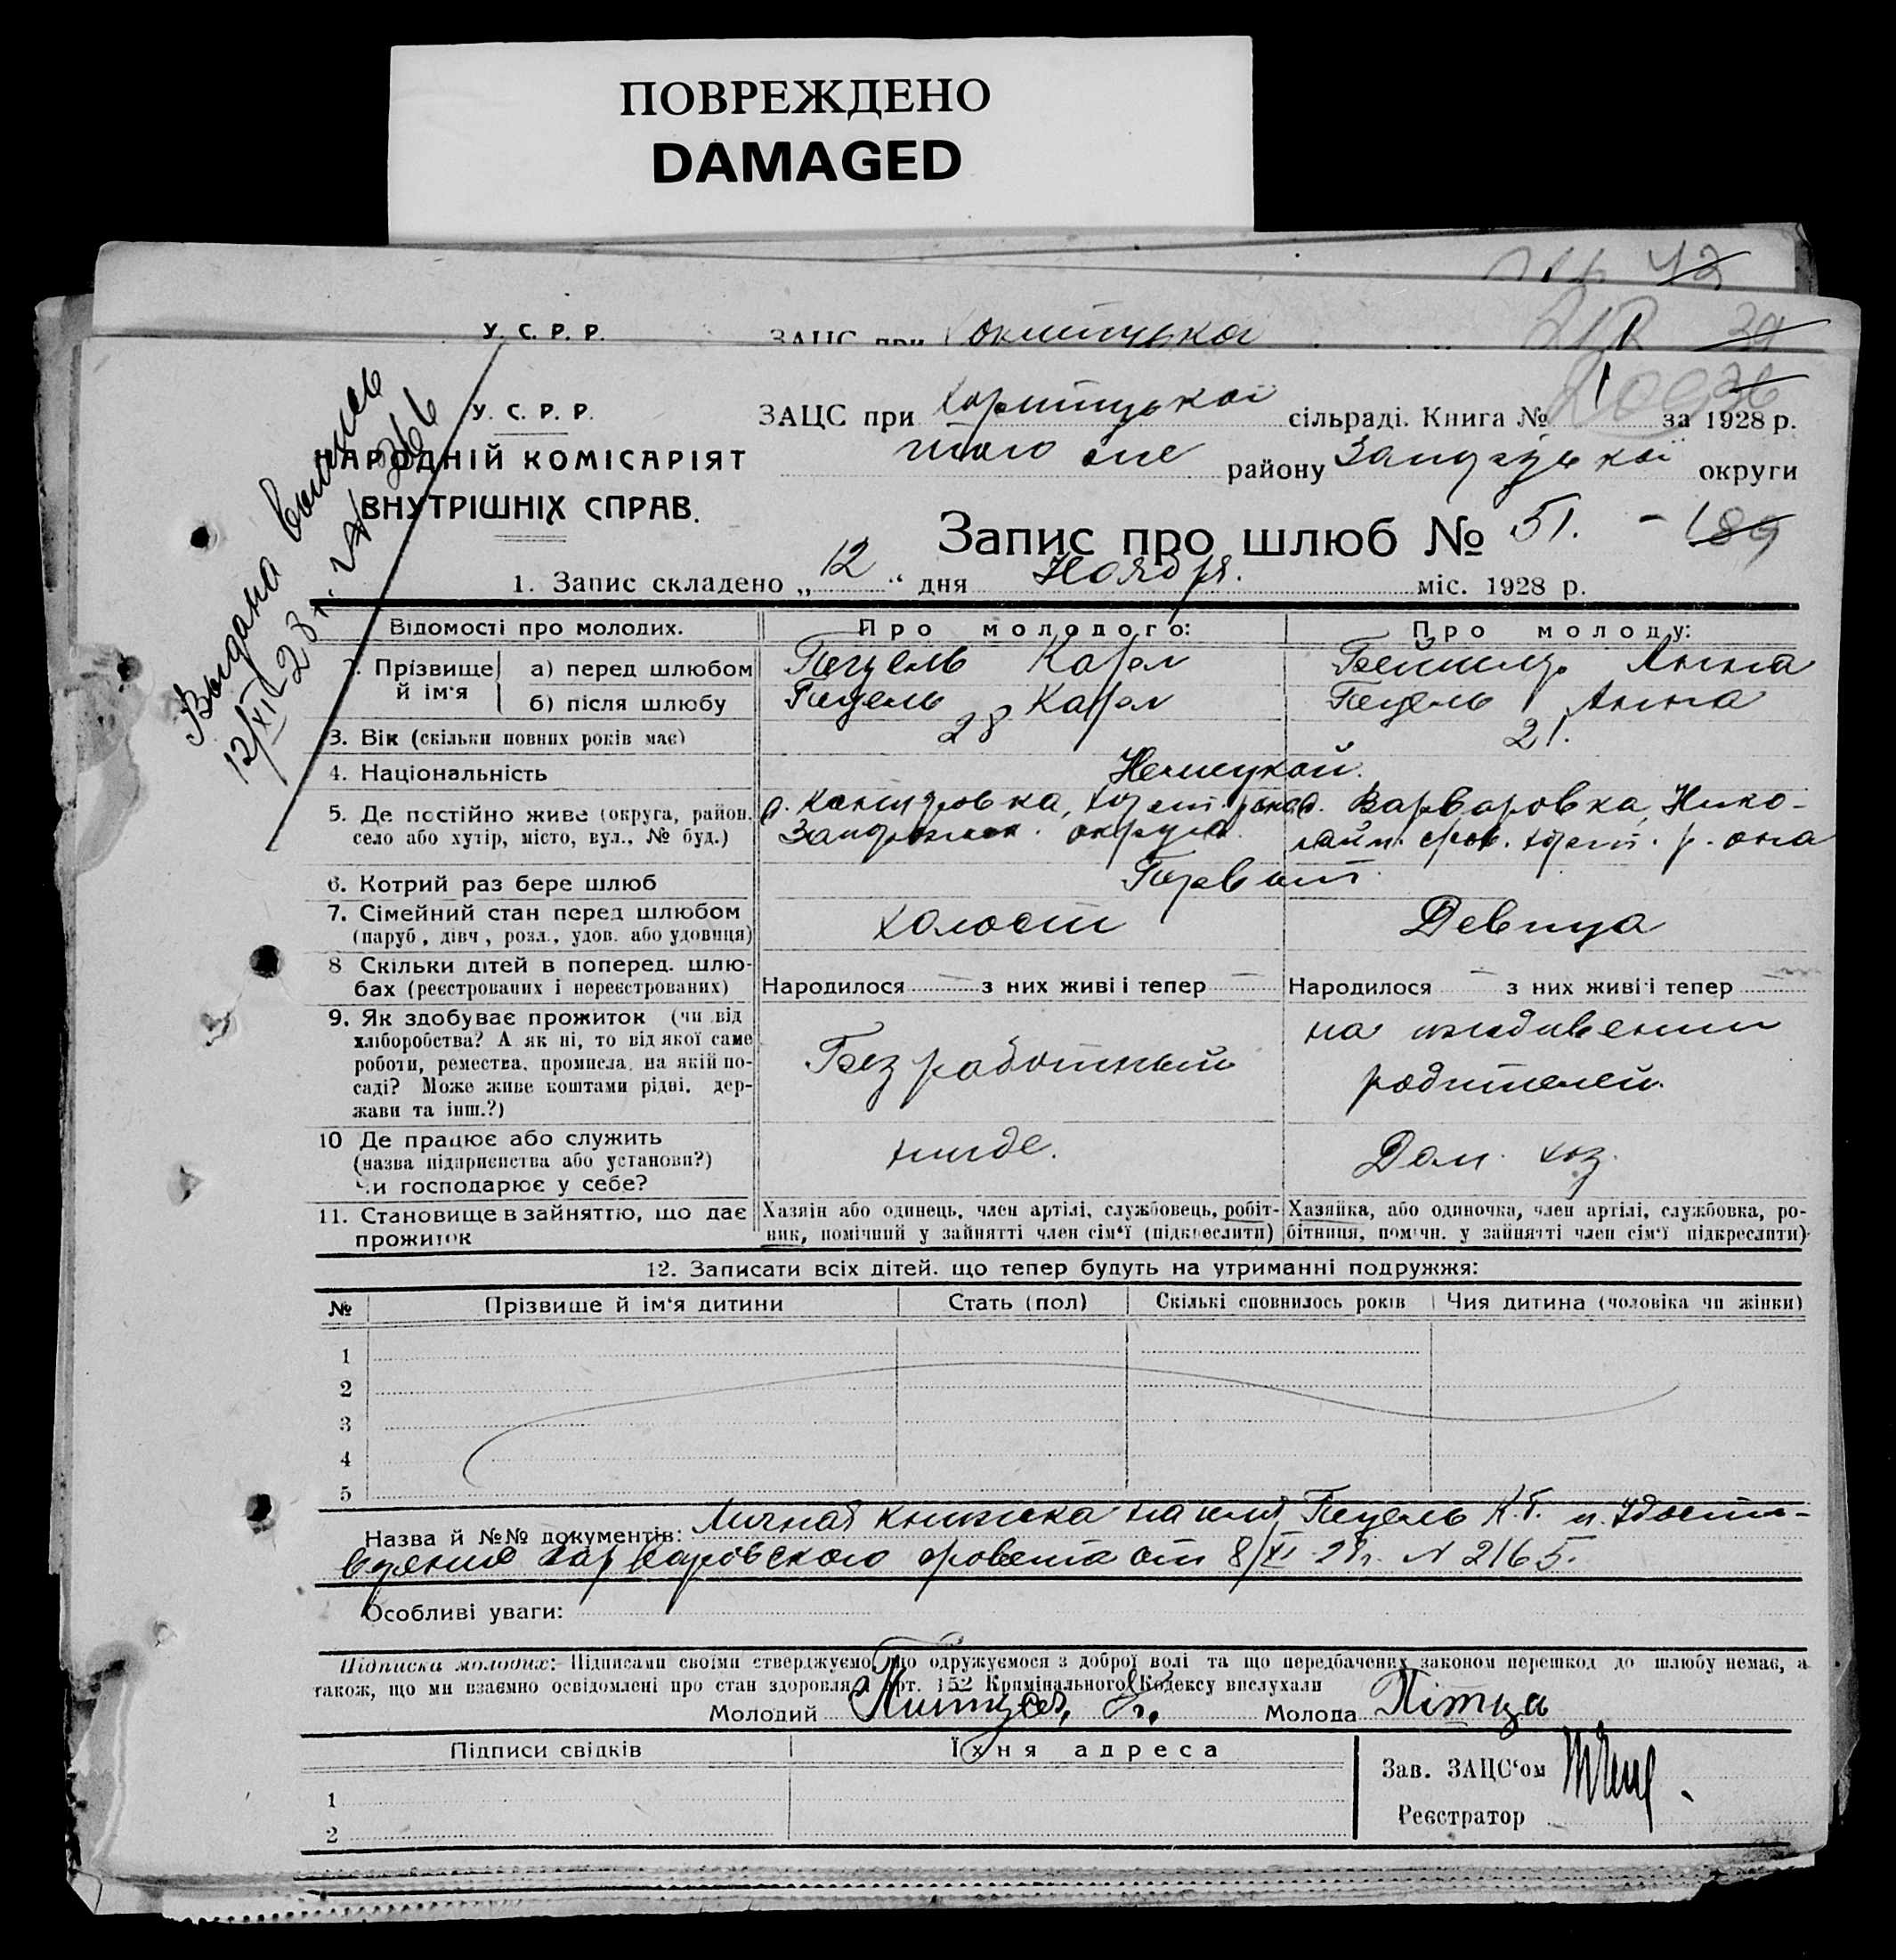 ПОВРЕЖДЕНО
DAMAGED
У. С. Р. Р.
ЗАЦС при
У. С. Р. Р.
НАРОДНІЙ КОМІСАРІЯТ
ВНУТРІШНІХ СПРАВ.
Выдана выпись
12/XI-28 г. № 366
ЗАЦС при Хортицької сільраді. Книга № 1 за 1928 р.
того ж району Запорізької округи
Запис про шлюб № 51. - 189
1. Запис складено „ 12 “ дня Ноября. міс. 1928 р.
Відомості про молодих. Про молодого: Про молоду:
2. Прізвище й ім'я а) перед шлюбом Пецель Карл Анна
б) після шлюбу Пецель Карл Пецель Анна
3. Вік (скільки повних років має) 28 21.
4. Національність Немецкой.
5. Де постійно живе (округа, район. с. Варваровка, Нико-
село або хутір, місто, вул., № буд.) Запорожск. округа.
6. Котрий раз бере шлюб Первый
7. Сімейний стан перед шлюбом холост Девица
(паруб, дівч, розл., удов. або удовиця)
8 Скільки дітей в поперед. шлю- Народилося з них живі і тепер Народилося з них живі і тепер
бах (реєстрованих і нереєстрованих)
9. Як здобуває прожиток (чи від на иждивении
хліборобства? А як ні, то від якої саме Безработный родителей.
роботи, ремества, промисла, на якій по-
саді? Може живе коштами рідні, дер-
жави та інш.?)
10 Де працює або служить нигде. Дом. хоз.
(назва підприємства або установи?)
Чи господарює у себе?
11. Становище в зайняттю, що дає Хазяїн або одинець, член артілі, службовець, робіт- Хазяйка, або одиночка, член артілі, службовка, ро-
прожиток ник, помічний у зайнятті член сім'ї (підкреслити) бітниця, помічн. у зайнятті член сім'ї підкреслити)
12. Записати всіх дітей. що тепер будуть на утриманні подружжя:
№ Прізвише й ім'я дитини Стать (пол) Скількі сповнилось років Чия дитина (чоловіка чи жінки)
1
2
3
4
5
Назва й №№ документів: Личная книжка на имя Пецель К.Г. и Удосто-
верение Варваровского от 8/XI-28г. N 2165.
Особливі уваги:
Підписка молодих: Підписами своїми стверджуємо, що одружуємося з доброї волі та що передбачених законом перешкод до шлюбу немає, а
також, що ми взаємно освідомлені про стан здоровля й арт. 152 Кримінального Кодексу вислухали
Молодий Молода
Підписи свідків Їхня адреса
Зав. ЗАЦС'ом
1
Реєстратор
2